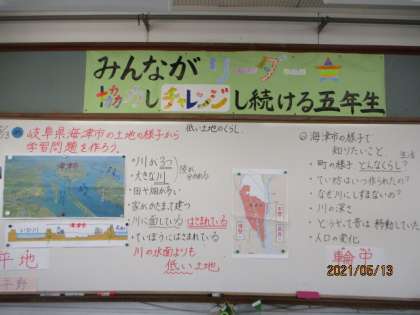 みんなが リーダー
協力し チャレンジ し続ける五年生
低い土地のくらし
岐阜県海津市の土地の様子から
学習問題を作ろう。
・川が3つ
・大きな川
・田や畑が多い
・家がかたまって建つ
・川に面している はさまれている
・ていぼうにはさまれている
川の水面よりも
低い土地
海津市
平地
平野
海津市の様子で
知りたいこと
生活
・町の様子 どんなくらし?
・てい防はいつ作られたの?
・なぜ川にしずまないの?
・川の深さ
・どうやって昔は移動していた
・人口の変化
輪中
2021/05/13